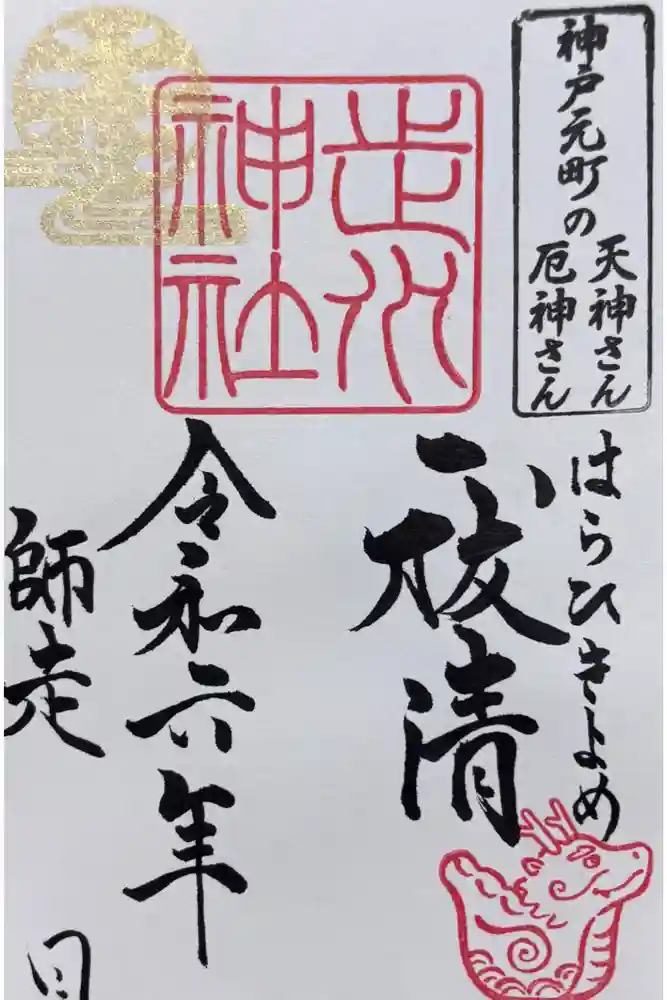 神戸元町の
天神さん
厄神さん
はらひきよめ
祓清
走水
神社
令和六年
師走
日